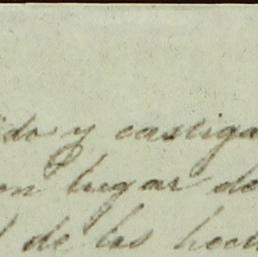 ido y castiga
on lugar de
l de los hech